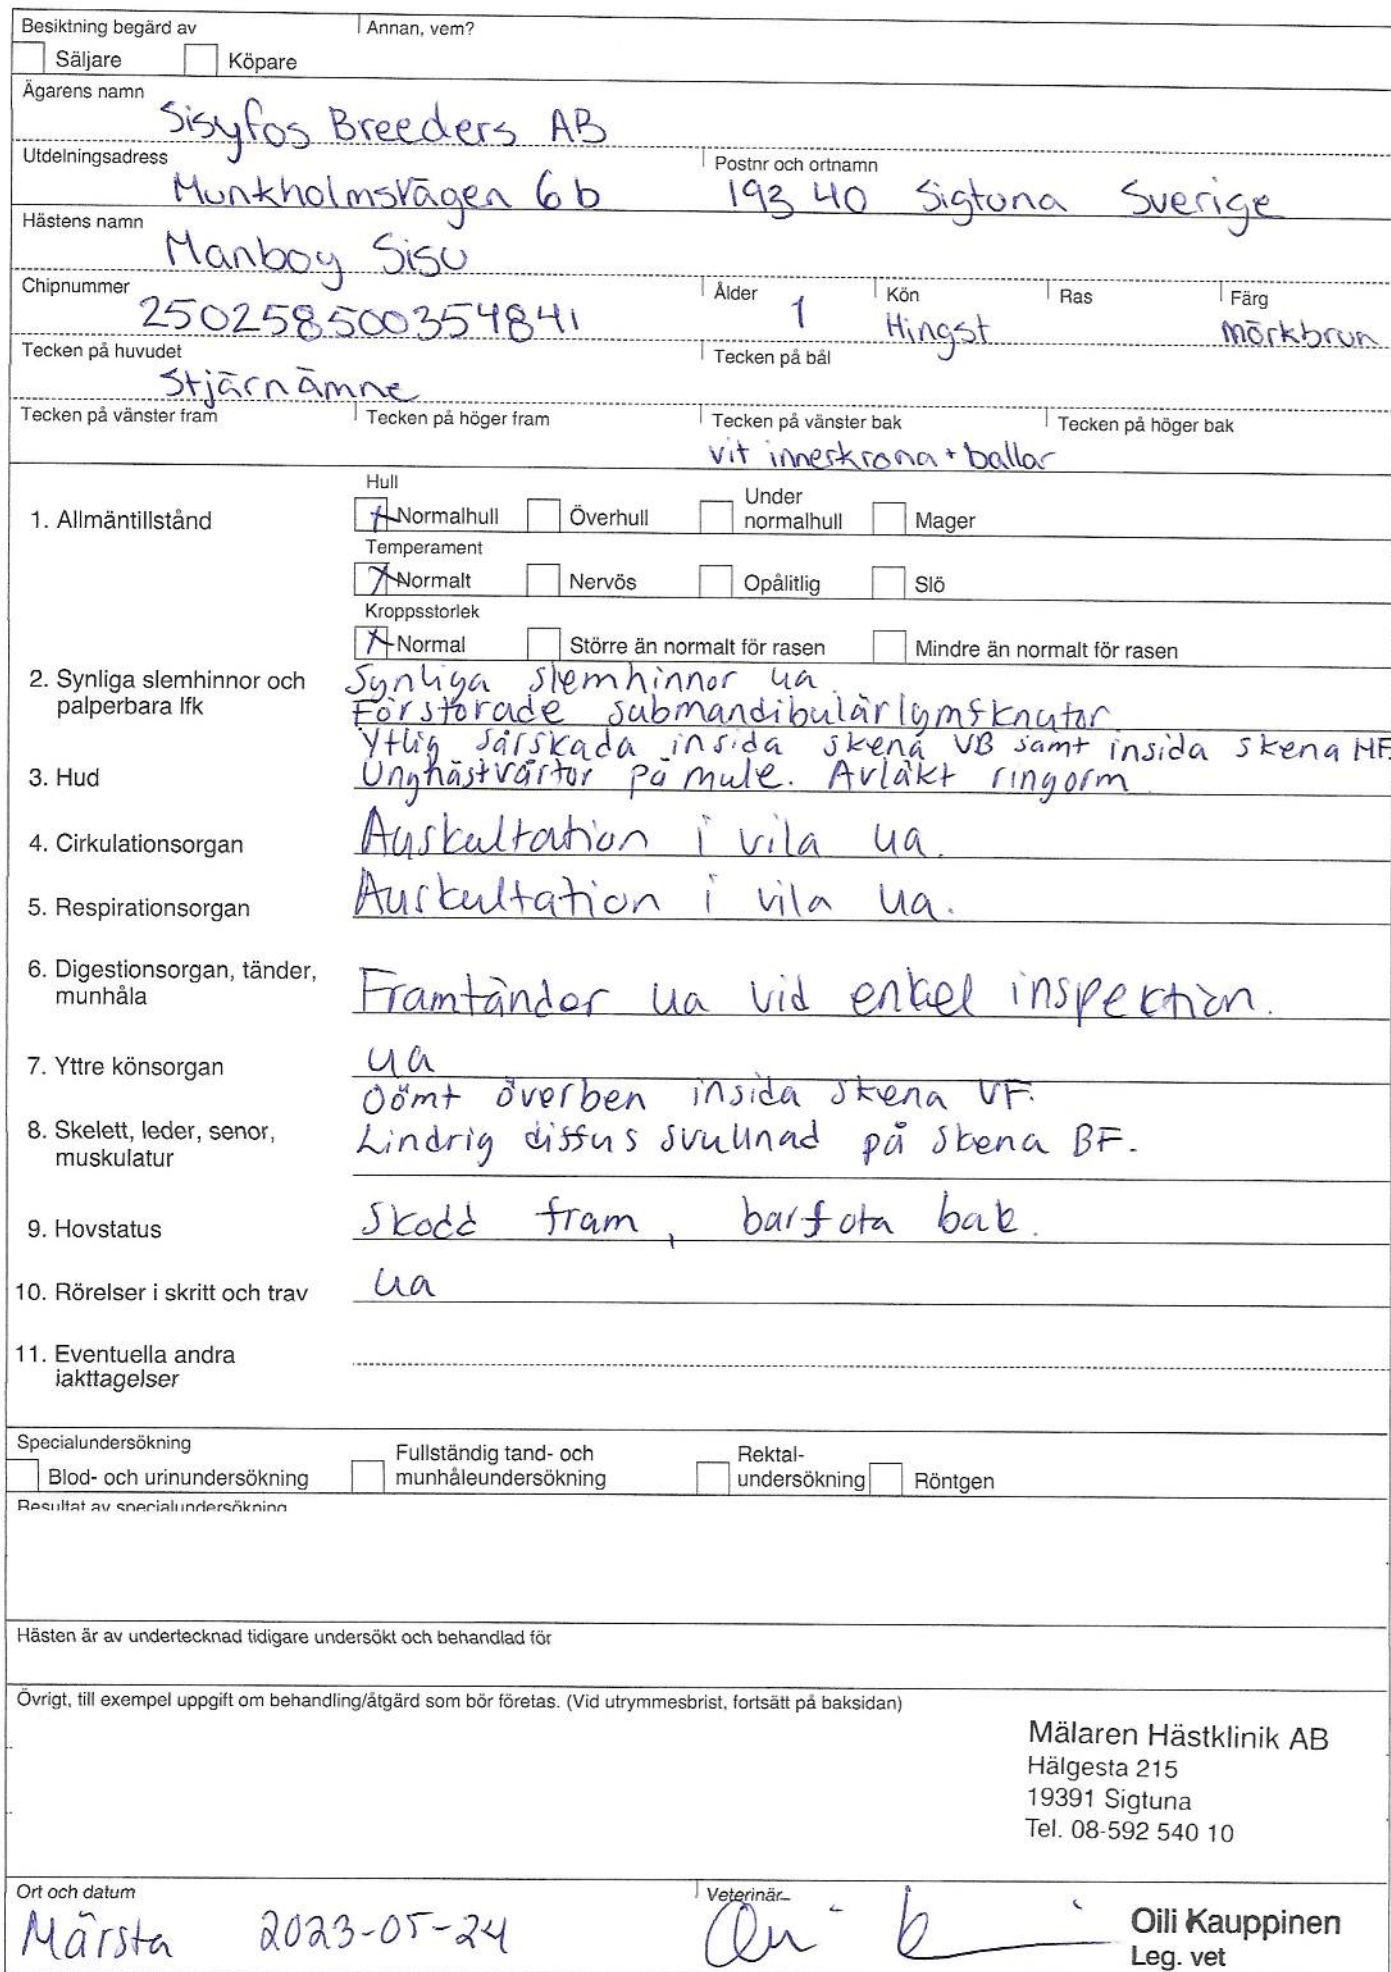 Besiktning begärd av Annan, vem?
Säljare Köpare
Ägarens namn
Sisyfos Breeders AB
Utdelningsadress Postnr och ortnamn
Munkholmsvägen 6b 193 40 Sigtuna Sverige
Hästens namn
Manboy Sisu
Chipnummer Ålder Kön Ras Färg
250258500354841 1 Hingst mörkbrun
Tecken på huvudet Tecken på bål
Stjärnämne
Tecken på vänster fram Tecken på höger fram Tecken på vänster bak Tecken på höger bak
vit innerkrona + ballar
Hull
1. Allmäntillstånd Normalhull Överhull Under normalhull Mager
Temperament
Normalt Nervös Opålitlig Slö
Kroppsstorlek
Normal Större än normalt för rasen Mindre än normalt för rasen
2. Synliga slemhinnor och Synliga slemhinnor ua.
palperbara lfk Förstorade submandibulärlymfknutor
Ytlig sårskada insida skena VB samt insida skena HF.
3. Hud Unghästvårtor på mule. Avläkt ringorm.
4. Cirkulationsorgan Auskultation i vila ua.
5. Respirationsorgan Auskultation i vila ua.
6. Digestionsorgan, tänder,
munhåla Framtänder ua vid enkel inspektion.
7. Yttre könsorgan ua
Oömt överben insida skena VF.
8. Skelett, leder, senor, Lindrig diffus svullnad på skena BF.
muskulatur
9. Hovstatus Skodd fram, barfota bak.
10. Rörelser i skritt och trav ua
11. Eventuella andra
iakttagelser
Specialundersökning
Blod- och urinundersökning Fullständig tand- och munhåleundersökning Rektal-undersökning Röntgen
Resultat av specialundersökning
Hästen är av undertecknad tidigare undersökt och behandlad för
Övrigt, till exempel uppgift om behandling/åtgärd som bör företas. (Vid utrymmesbrist, fortsätt på baksidan)
Mälaren Hästklinik AB
Hälgesta 215
19391 Sigtuna
Tel. 08-592 540 10
Ort och datum Veterinär
Märsta 2023-05-24 Oili Kauppinen
Leg. vet